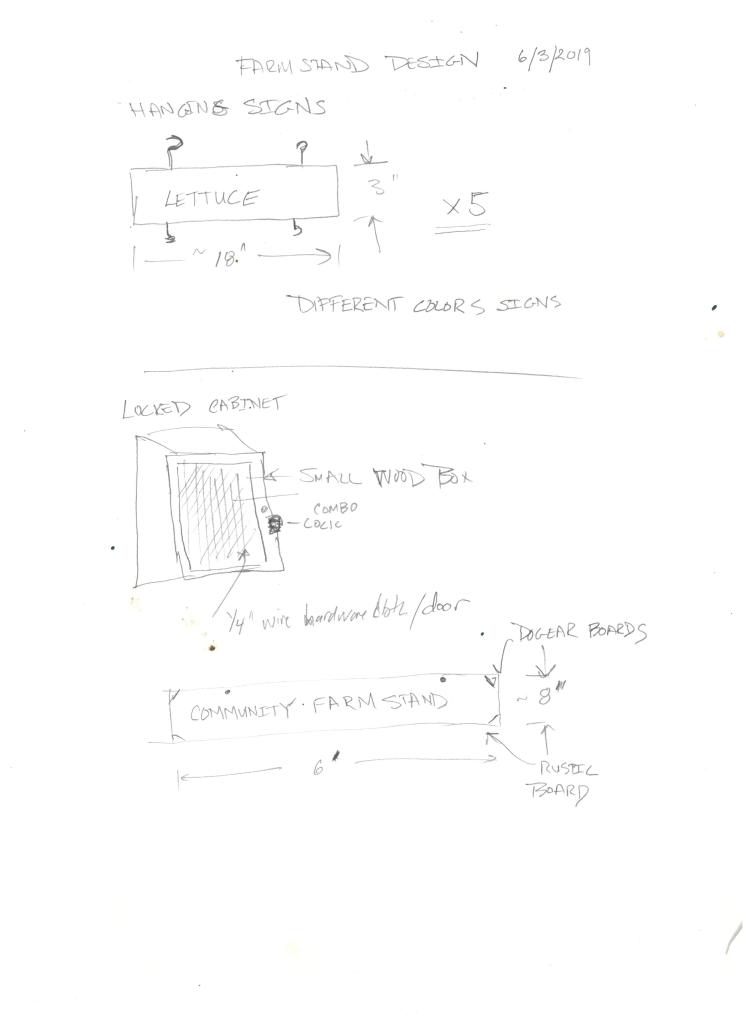 FARM STAND DESIGN 6/3/2019
HANGING SIGNS
LETTUCE
3"
x5
~ 18"
DIFFERENT COLORS SIGNS
LOCKED CABINET
SMALL WOOD BOX
COMBO
LOCK
1/4" wire hardware cloth/door
DOGEAR BOARDS
COMMUNITY · FARM STAND
~ 8"
6'
RUSTIC
BOARD